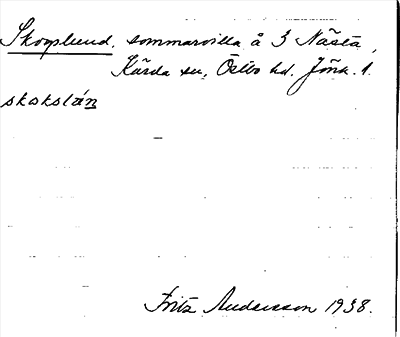 Skogslund, sommarvilla å 3 Nästa,
Kärda sn, Östbo hd. Jönk. l.
skokslán
Fritz Andersson 1938.